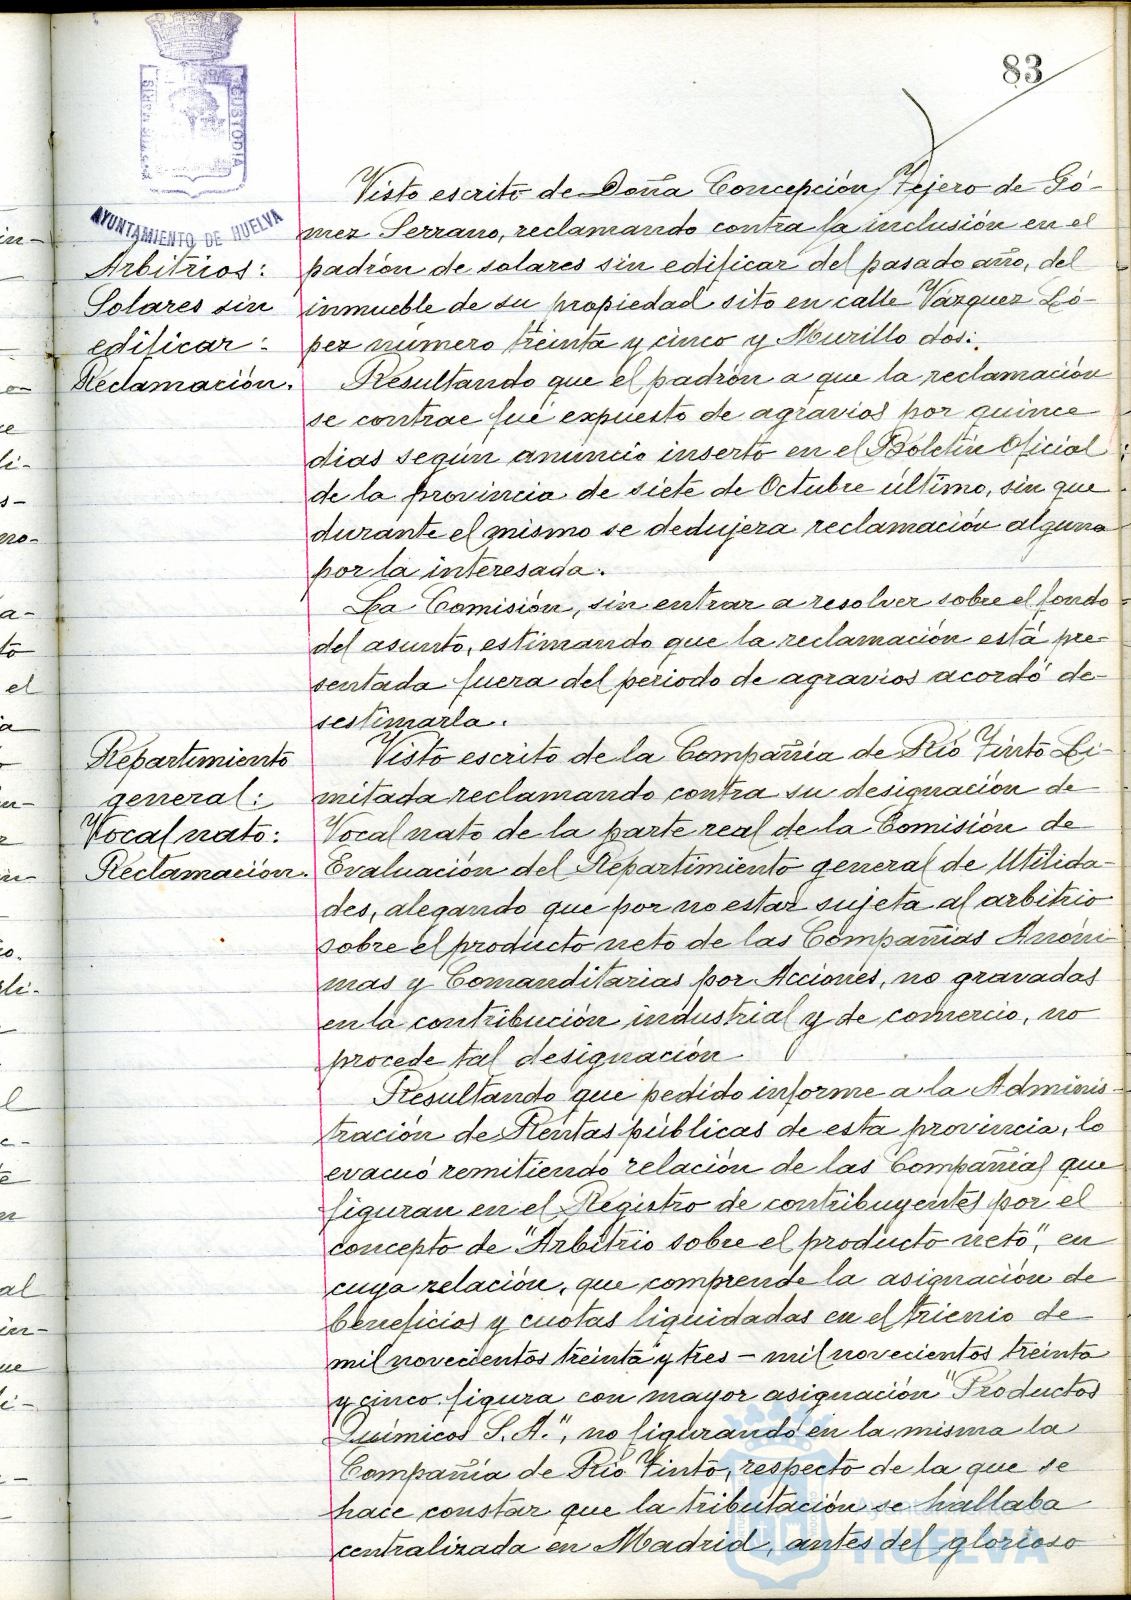 83
PORTUS MARIS ET TERRE CUSTODIA
AYUNTAMIENTO DE HUELVA
Arbitrios:
Solares sin
edificar:
Reclamación.
Visto escrito de Doña Concepción Tejero de Gó-
mez Serrano, reclamando contra la inclusión en el
padrón de solares sin edificar del pasado año, del
inmueble de su propiedad sito en calle Vazquez Ló-
pez número treinta y cinco y Murillo dos:
Resultando que el padrón a que la reclamación
se contrae fué expuesto de agravios por quince
dias según anuncio inserto en el Boletín Oficial
de la provincia de siete de Octubre último, sin que
durante el mismo se dedujera reclamación alguna
por la interesada.
La Comisión, sin entrar a resolver sobre el fondo
del asunto, estimando que la reclamación está pre-
sentada fuera del periodo de agravios acordó de-
sestimarla.
Repartimiento
general:
Vocal nato:
Reclamación.
Visto escrito de la Compañia de Rio Tinto Li-
mitada reclamando contra su designación de
Vocal nato de la parte real de la Comisión de
Evaluación del Repartimiento general de Utilida-
des, alegando que por no estar sujeta al arbitrio
sobre el producto neto de las Compañias Anóni-
mas y Comanditarias por Acciones, no gravadas
en la contribución industrial y de comercio, no
procede tal designación.
Resultando que pedido informe a la Adminis-
tración de Rentas públicas de esta provincia, lo
evacuó remitiendo relación de las Compañias que
figuran en el Registro de contribuyentes por el
concepto de "Arbitrio sobre el producto neto", en
cuya relación, que comprende la asignación de
beneficios y cuotas liquidadas en el trienio de
mil novecientos treinta y tres - mil novecientos treinta
y cinco figura con mayor asignación "Productos
Químicos S.A.", no figurando en la misma la
Compañía de Rio Tinto, respecto de la que se
hace constar que la tributación se hallaba
centralizada en Madrid, antes del glorioso
Ayuntamiento de
HUELVA